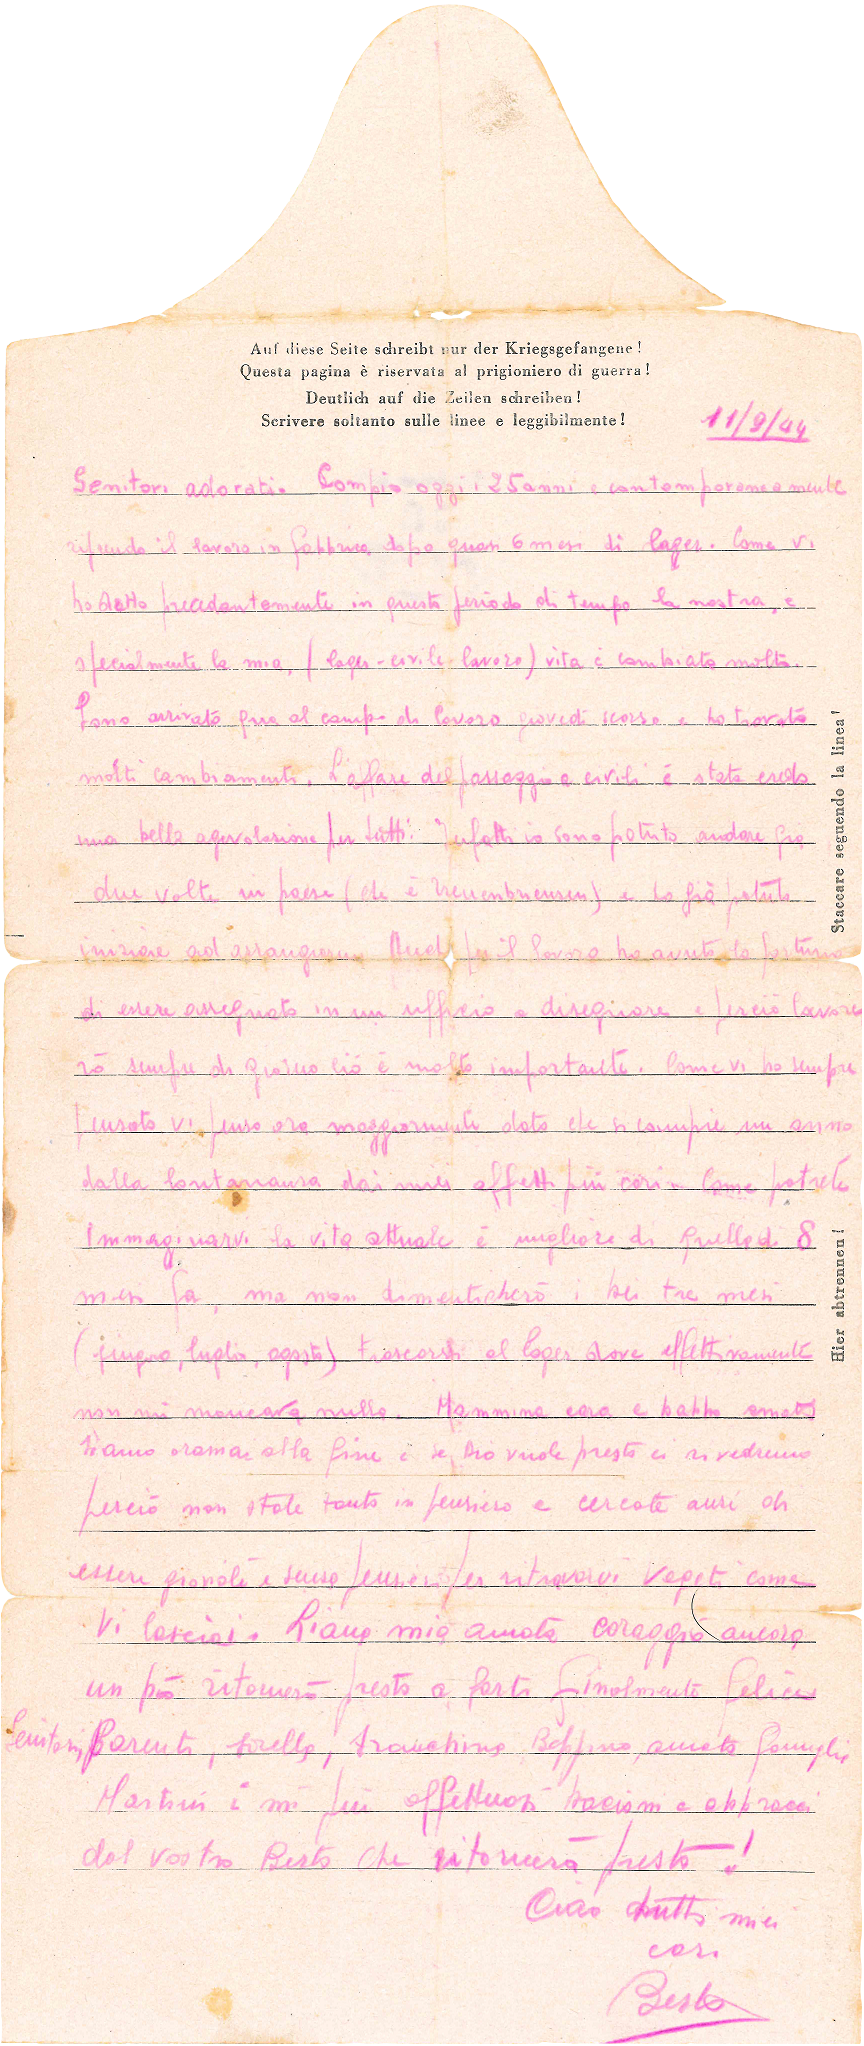 Auf diese Seite schreibt nur der Kriegsgefangene!
Questa pagina è riservata al prigioniero di guerra!
Deutlich auf die Zeilen schreiben!
Scrivere soltanto sulle linee e leggibilmente!
11/9/44
Genitori adorati. Compio oggi i 25 anni e contemporaneamente
riprendo il lavoro in fabbrica dopo quasi 6 mesi di lager. Come vi
ho detto precedentemente in questo periodo di tempo la nostra, e
specialmente la mia, (lager-civile lavoro) vita è cambiata molto.
Sono arrivato qua al campo di lavoro giovedì scorso e ho trovato
molti cambiamenti. L'affare del passaggio a civili è stata credo
una bella agevolazione per tutti. Infatti io sono potuto andare già
due volte in paese (che è Treuenbriensen) e ho già potuto
iniziare ad arrangiarmi. Anche per il lavoro ho avuto la fortuna
di essere assegnato in un ufficio a disegnare e perciò lavore
rò sempre di giorno ciò è molto importante. Come vi ho sempre
pensato vi penso ora maggiormente dato che si compie un anno
dalla lontananza dai miei affetti più cari. Come potrete
Immaginarvi la vita attuale è migliore di quella di 8
mesi fa, ma non dimenticherò i bei tre mesi
(giugno, luglio, agosto) trascorsi al lager dove effettivamente
non mi mancava nulla. Mammina cara e babbo amato
siamo oramai alla fine e se Dio vuole presto ci rivedremo
perciò non state tanto in pensiero e cercate anzi di
essere gioviali e senza pensieri per ritrovarvi vegeti come
vi lasciai. Liana mia amata coraggio ancora
un pò ritornerò presto a farti finalmente felice
Genitori, Parenti, sorella, Franchino, Beppino, amata famiglia
Martini i miei più affettuosi bacioni e abbracci
dal vostro Berto che ritornerà presto!
Ciao tutti miei
cari
Berto
Staccare seguendo la linea!
Hier abtrennen!